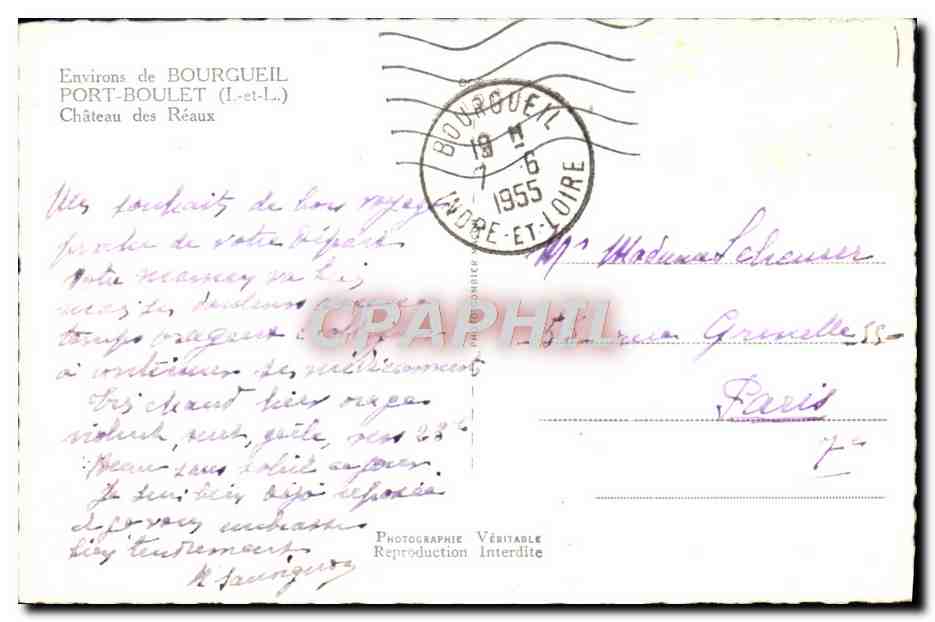 Environs de BOURGUEIL
PORT-BOULET (I.-et-L.)
Château des Réaux
BOURGUEIL
19 H
7 6
1955
INDRE-ET-LOIRE
souhaits de bon voyage
de votre Départ
votre maman va bien
mais ses douleurs
temps orageux
à continuer ses médicaments
Très chaud hier orage
violent, vent, grêle, vers 23h
Beau sans soleil
Je suis bien déjà reposée
et je vous embrasse
bien tendrement
Mr Madame Scheurer
rue Grenelle 55
Paris
7e
CPAPHIL
PHOTOGRAPHIE VÉRITABLE
Reproduction Interdite